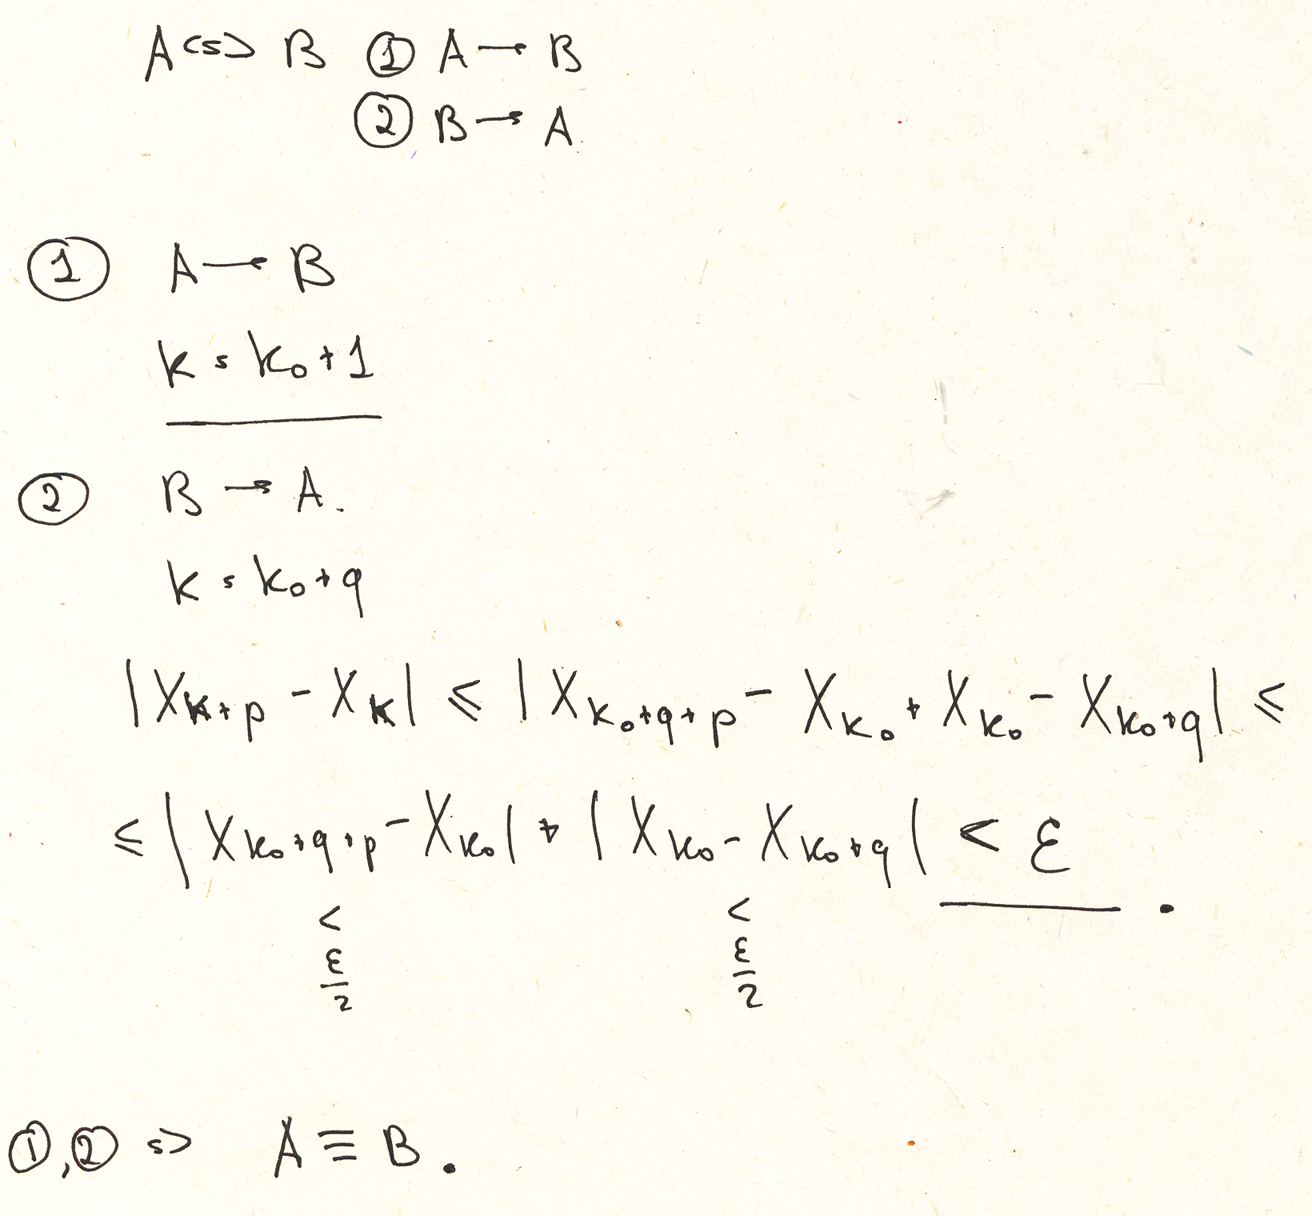 A <=> B ① A → B
② B → A.
① A → B
k = k₀ + 1
② B → A.
k = k₀ + q
|Xₖ₊ₚ - Xₖ| ≤ |X_{k₀+q+p} - X_{k₀} + X_{k₀} - X_{k₀+q}| ≤
≤ |X_{k₀+q+p} - X_{k₀}| + |X_{k₀} - X_{k₀+q}| < ε.
< <
ε/2 ε/2
①,② => A ≡ B.